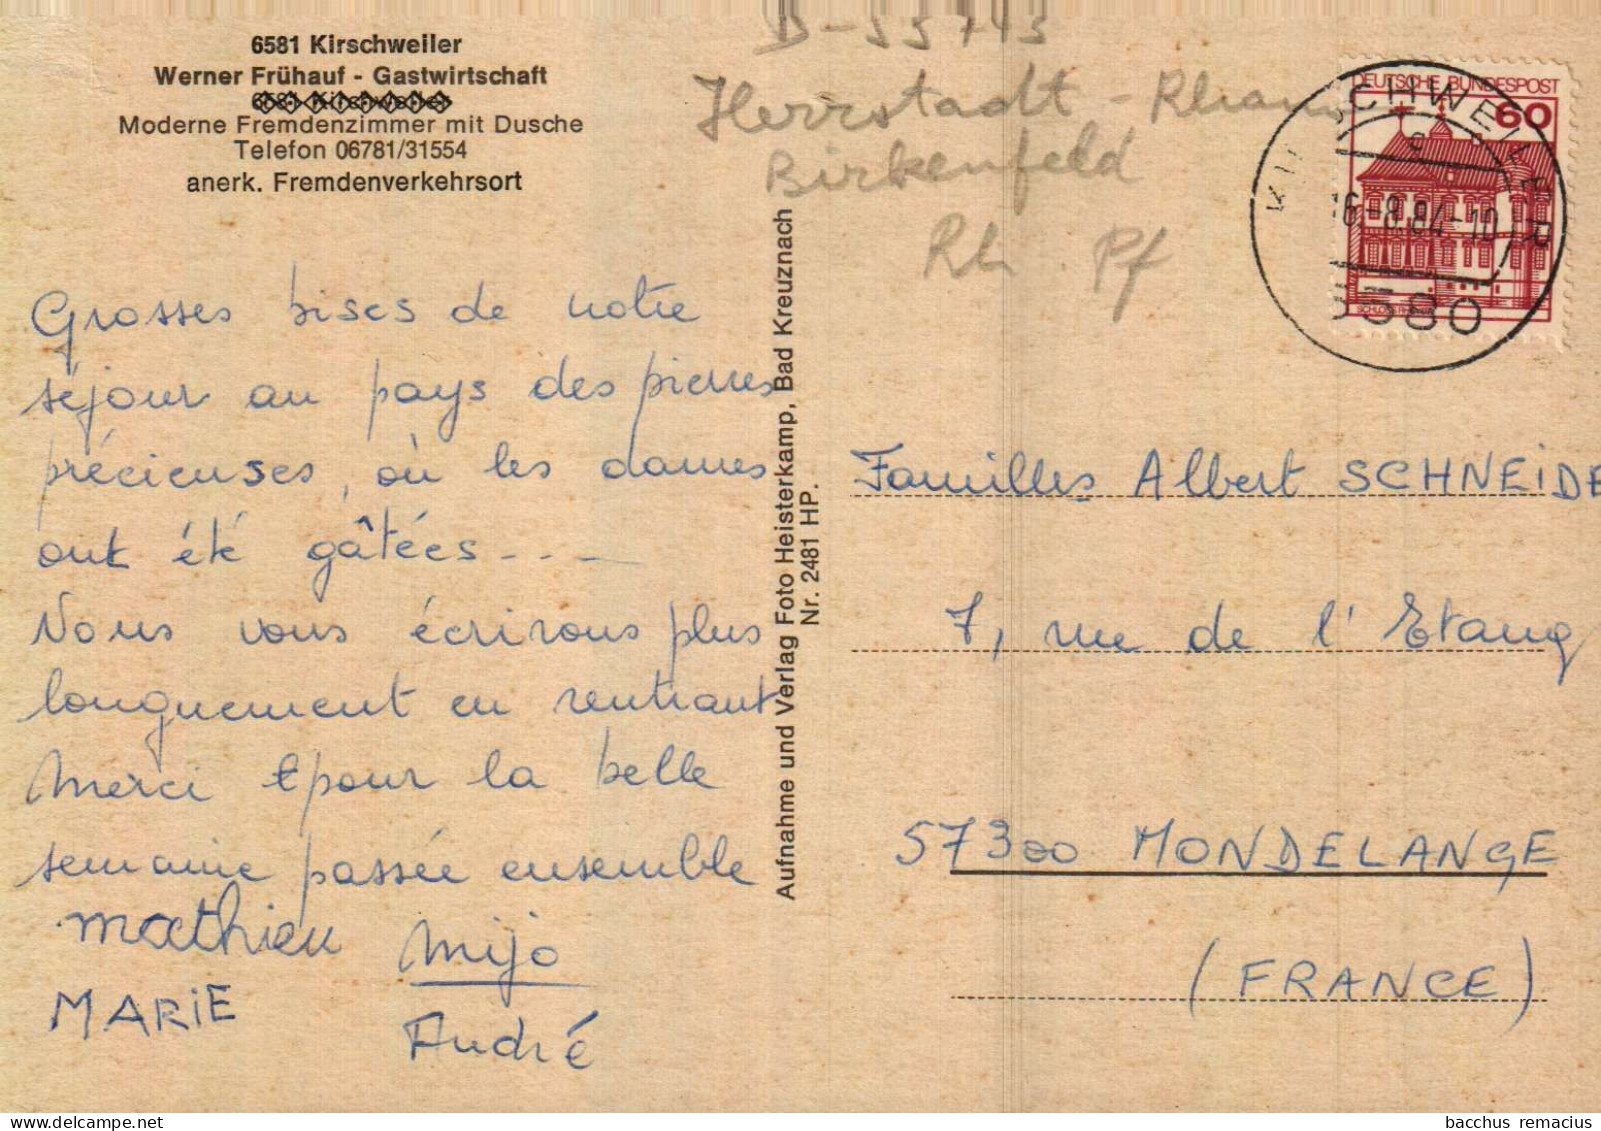 6581 Kirschweiler
Werner Frühauf - Gastwirtschaft
6581 Kirschweiler
Moderne Fremdenzimmer mit Dusche
Telefon 06781/31554
anerk. Fremdenverkehrsort
D-55743
Herrstadt - Rhaun
Birkenfeld
Rh. Pf
DEUTSCHE BUNDESPOST
60
16.-8.84-10
6580
Grosses bises de notre
séjour au pays des pierres
précieuses, où les dames
ont été gâtées...
Nous vous écrirons plus
longuement en rentrant
Merci pour la belle
semaine passée ensemble
Mathieu Mijo
MARIE André
Aufnahme und Verlag Foto Heisterkamp, Bad Kreuznach
Nr. 2481 HP.
Familles Albert SCHNEIDE
7, rue de l'Etang
57300 MONDELANGE
(FRANCE)
bacchus remacius